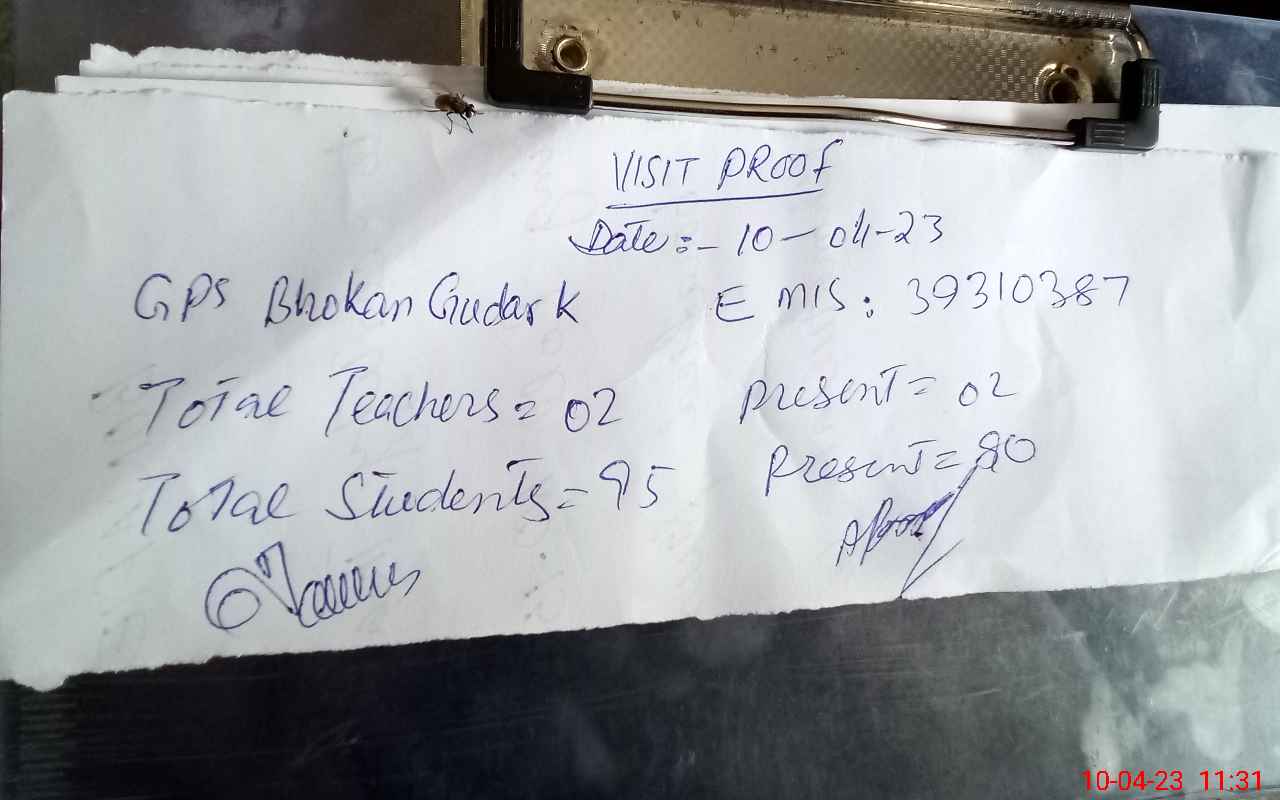 VISIT PROOF
Date:- 10-04-23
GPS Bhokan Gudar K EMIS: 39310387
Total Teachers = 02 present = 02
Total Students = 95 Present = 80
10-04-23 11:31